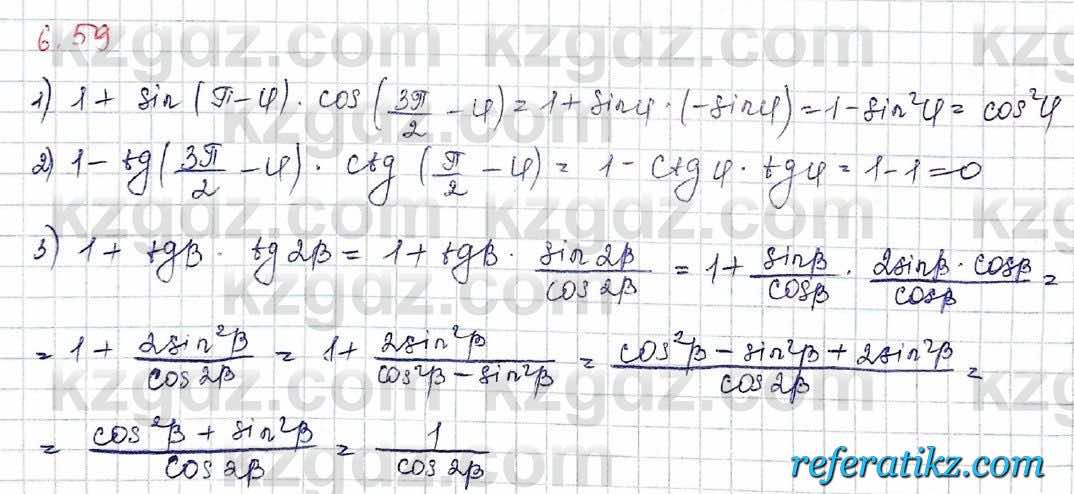 6.59
1) 1 + sin (π – φ) · cos (3π/2 – φ) = 1 + sinφ · (–sinφ) = 1 – sin²φ = cos²φ
2) 1 – tg (3π/2 – φ) · ctg (π/2 – φ) = 1 – ctgφ · tgφ = 1 – 1 = 0
3) 1 + tgβ · tg2β = 1 + tgβ · sin2β/cos2β = 1 + sinβ/cosβ · 2sinβ · cosβ/cosβ =
= 1 + 2sin²β/cos2β = 1 + 2sin²β/cos²β – sin²β = cos²β – sin²β + 2sin²β/cos2β =
= cos²β + sin²β/cos2β = 1/cos2β
referatikz.com
kzgdz.com